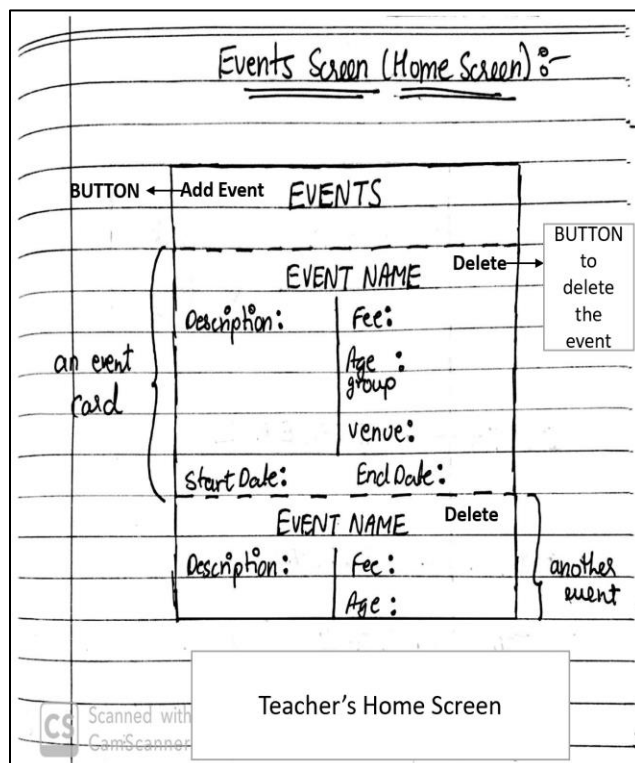 Events Screen (Home Screen):-
BUTTON Add Event EVENTS
BUTTON
to
delete
the
event
EVENT NAME Delete
Description: Fee:
an event
card
Age :
group
Venue:
Start Date: End Date:
EVENT NAME Delete
Description: Fee:
Age :
another
event
Teacher's Home Screen
CS Scanned with
CamScanner